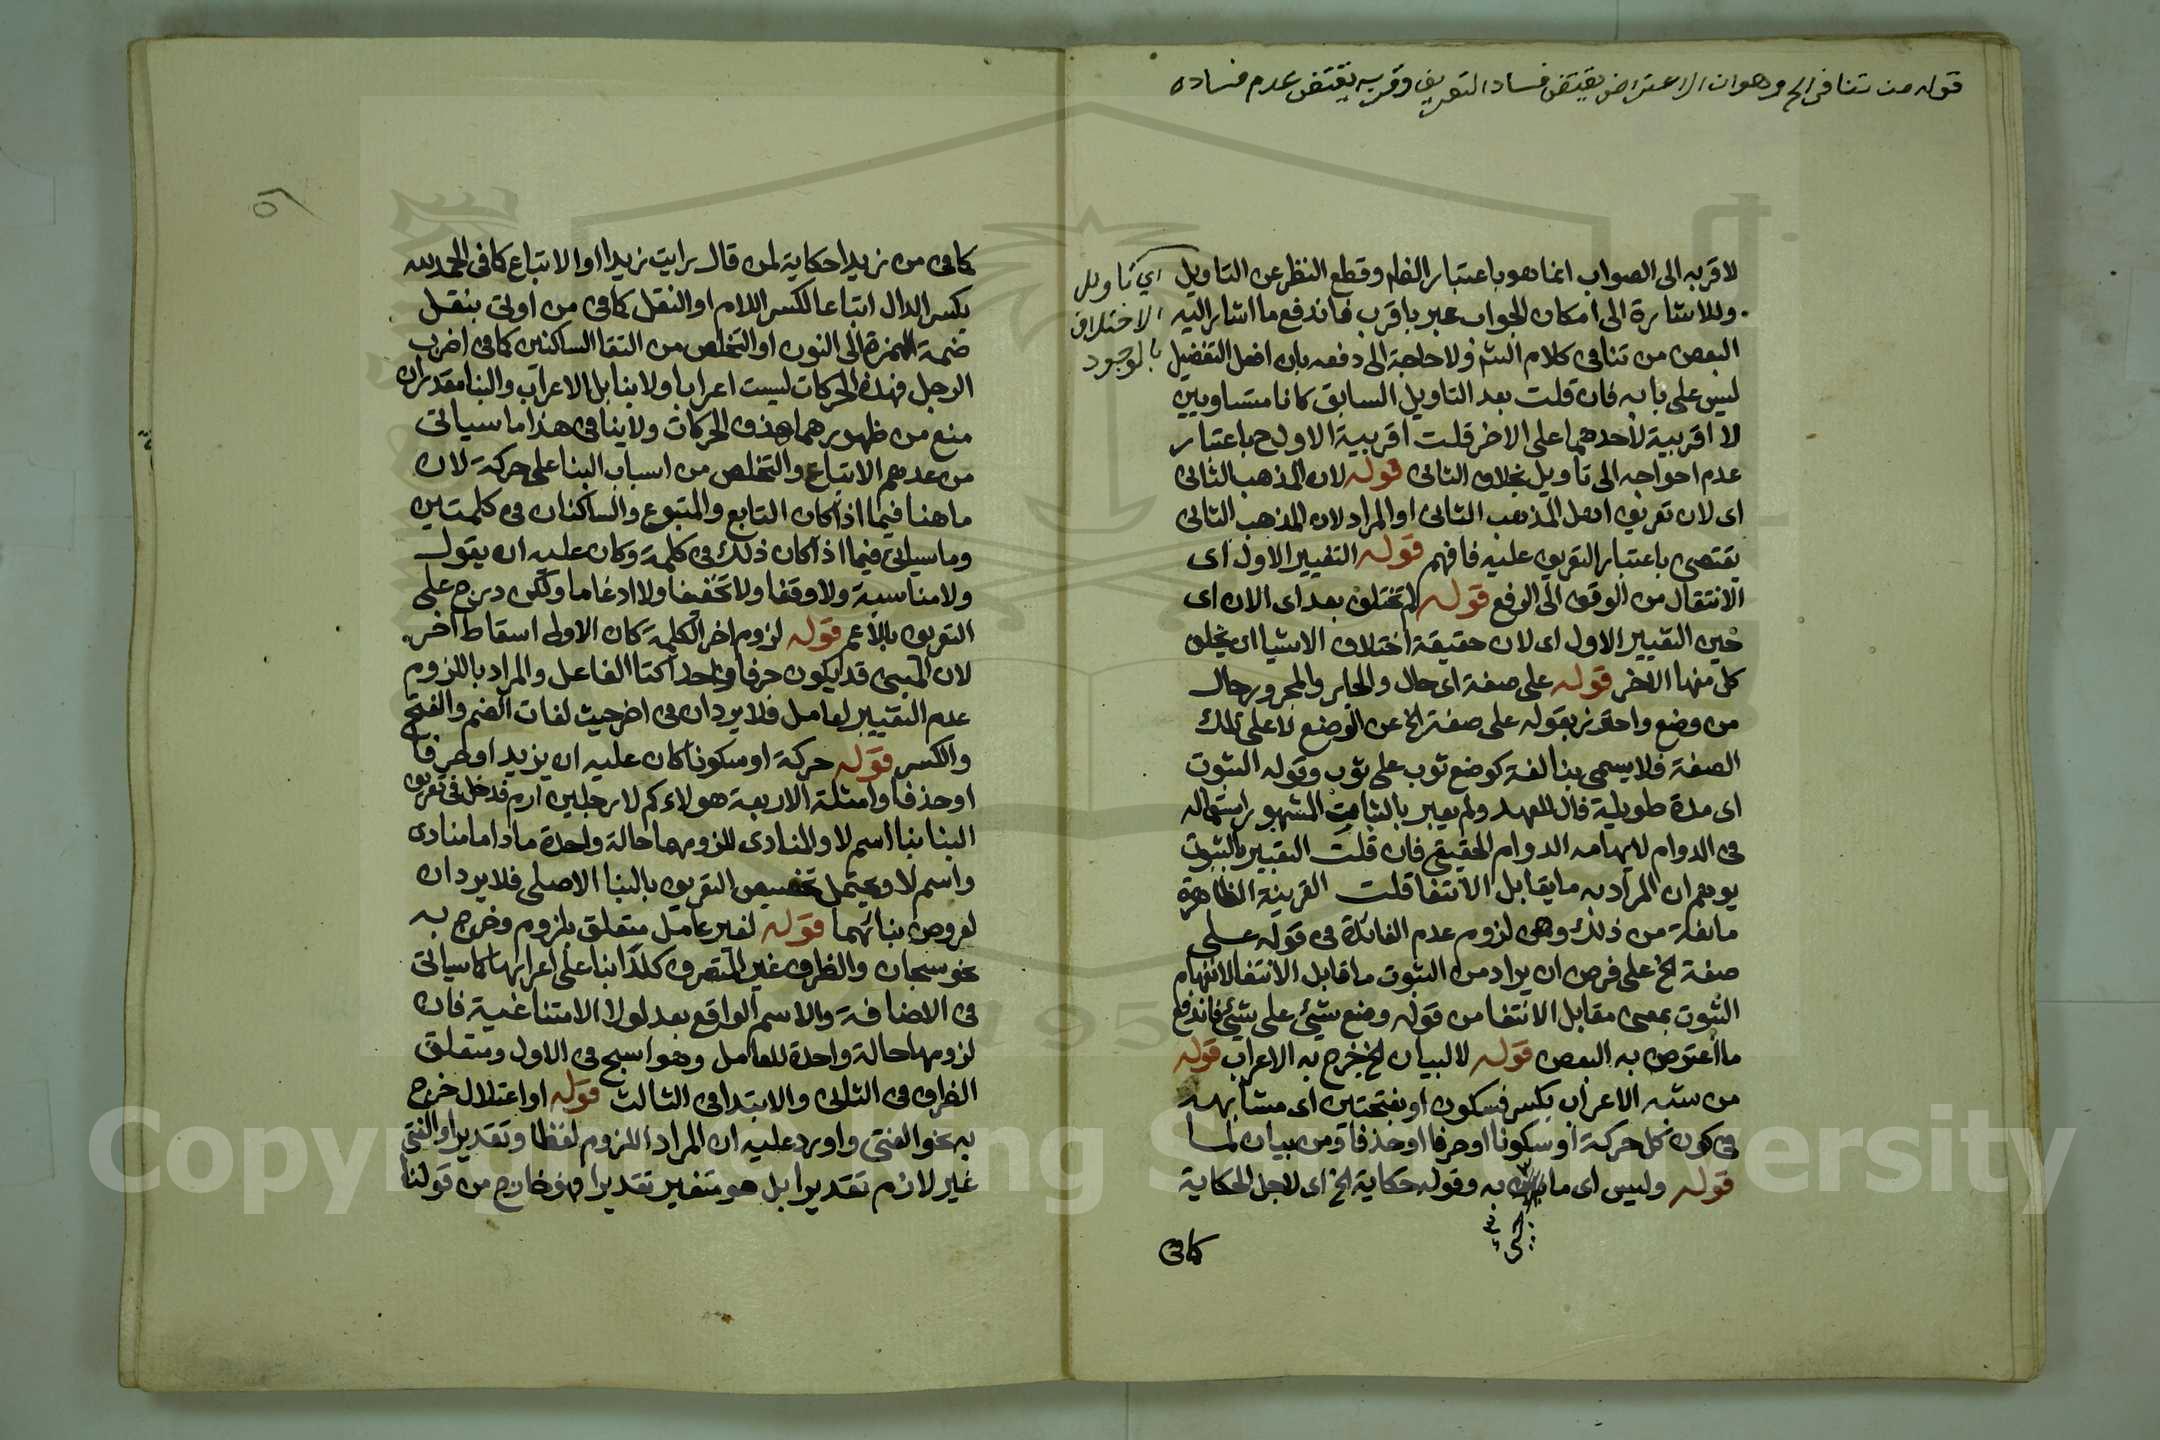 قوله من تنافى الخ وهوان الاعتراض يقتضى فساد التعريف وقربه يقتضى عدم فساده
لا قربه الى الصواب انما هو باعتبار الظا وقطع النظر عن التاويل
اى تاويل
الاختلاف
بالوجود
وللاشارة الى امكان الجواب عبر باقرب فاندفع ما اشار اليه
البعض من تنافى كلام الش ولا حاجة الى دفعه بان افعل التفضيل
ليس على بابه فان قلت بعد التاويل السابق كانا متساويين
لا اقربية لاحدهما على الاخر قلت اقربية الاول ح باعتبار
عدم احواجه الى تاويل بخلاف الثانى قوله لان المذهب الثانى
اى لان تعريف اهل المذهب الثانى او المراد لان المذهب الثانى
يقتضى باعتبار التعريف عليه فافهم قوله التغيير الاول اى
الانتقال من الوقف الى الرفع قوله لم تختلف بعد اى الان اى
حين التغيير الاول اى لان حقيقة اختلاف الاشيا ان يخلف
كل منها الاخر قوله على صفة اى حال والجار والمجرور حال
من وضع واحترز بقوله على صفة الخ عن الوضع لا على تلك
الصفة فلا يسمى بنا لغة كوضع ثوب على ثوب وقوله الثبوت
اى مدة طويلة فال للعهد ولم يعبر بالثابت المشهور استعماله
فى الدوام لايهامه الدوام الحقيقى فان قلت التعبير بالثبوت
يوهم ان المراد به ما يقابل الانتفا قلت القرينة الظاهرة
مانعة من ذلك وهى لزوم عدم الفائدة فى قوله على
صفة الخ على فرض ان يراد من الثبوت ما قابل الانتفا لانفهام
الثبوت بمعنى مقابل الانتفا من قوله وضع شئ على شئ فاندفع
ما اعترض به البعض قوله لا لبيان الخ خرج به الاعراب قوله
من شبه الاعراب بكسر فسكون او بفتحتين اى مشابهه
فى كون كل حركة او سكونا او حرفا او حذفا ومن بيان لما
قوله وليس اى ما به وقوله حكاية الخ اى لاجل الحكاية
كما فى
كما فى من زيدا حكاية لمن قال رايت زيدا او الاتباع كما فى الحمد لله
بكسر الدال اتباعا لكسر اللام او النقل كما فى من اوتى بنقل
ضمة الهمزة الى النون او التخلص من التقا الساكنين كما فى اضرب
الرجل فهذه الحركات ليست اعرابا ولا بنا بل الاعراب والبنا مقدران
منع من ظهورهما هذه الحركات ولا ينافى هذا ما سياتى
من عدهم الاتباع والتخلص من اسباب البنا على حركة لان
ما هنا فيما اذا كان التابع والمتبوع والساكنان فى كلمتين
وما سياتى فيما اذا كان ذلك فى كلمة وكان عليه ان يقول
ولا مناسبة ولا وقفا ولا تخفيفا ولا ادغاما ولكن درج على
التعريف بالاعم قوله لزوم اخر الكلمة كان الاولى اسقاط اخر
لان المبنى قد يكون حرفا واحدا كتا الفاعل والمراد باللزوم
عدم التغيير لعامل فلا يرد ان فى اخر حيث لغات الضم والفتح
والكسر قوله حركة او سكونا كان عليه ان يزيد او حرفا
او حذفا وامثلة الاربعة هولاء كم لا رجلين ارم فدخل فى تعريف
البنا بنا اسم لا والمنادى للزومهما حالة واحدة ما داما منادى
واسم لا ويحتمل تخصيص التعريف بالبنا الاصلى فلا يرد ان
لعروض بنائهما قوله لغير عامل متعلق بلزوم وخرج به
نحو سبحان والظرف غير المتصرف كلدا بنا على اعرابها كما سياتى
فى الاضافة والاسم الواقع بعد لولا الامتناعية فان
لزومها حالة واحدة للعامل وهو اسبح فى الاول ومتعلق
الظرف فى الثانى والابتدا فى الثالث قوله او اعتلال خرج
به نحو الفتى واورد عليه ان المراد اللزوم لفظا وتقديرا والفتى
غير لازم تقديرا بل هو متغير تقديرا فهو خارج من قولنا
Copyright © King Saud University
195